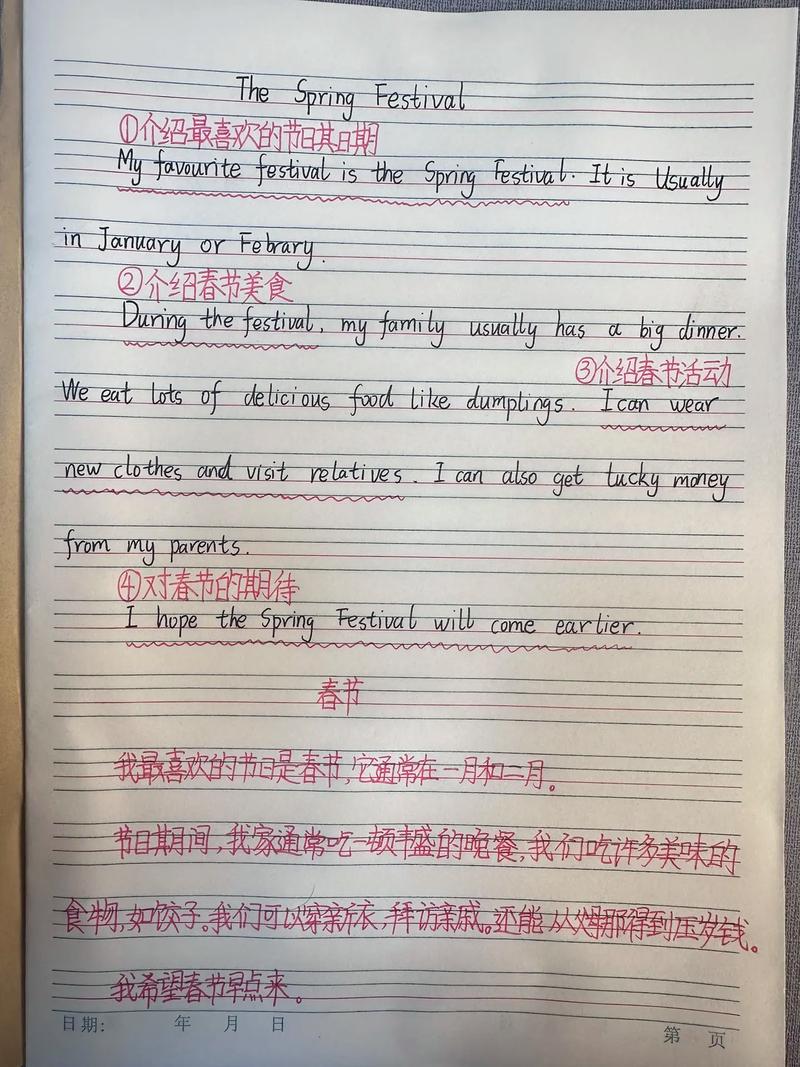 The Spring Festival
①介绍最喜欢的节日其日期
My favourite festival is the Spring Festival. It is Usually
in January or Febrary.
②介绍春节美食
During the festival, my family usually has a big dinner.
③介绍春节活动
We eat lots of delicious food like dumplings. I can wear
new clothes and visit relatives. I can also get lucky money
from my parents.
④对春节的期待
I hope the Spring Festival will come earlier.
春节
我最喜欢的节日是春节,它通常在一月和二月。
节日期间,我家通常吃一顿丰盛的晚餐,我们吃许多美味的
食物,如饺子。我们可以穿新衣,拜访亲戚。还能从父母那得到压岁钱。
我希望春节早点来。
日期: 年 月 日
第 页